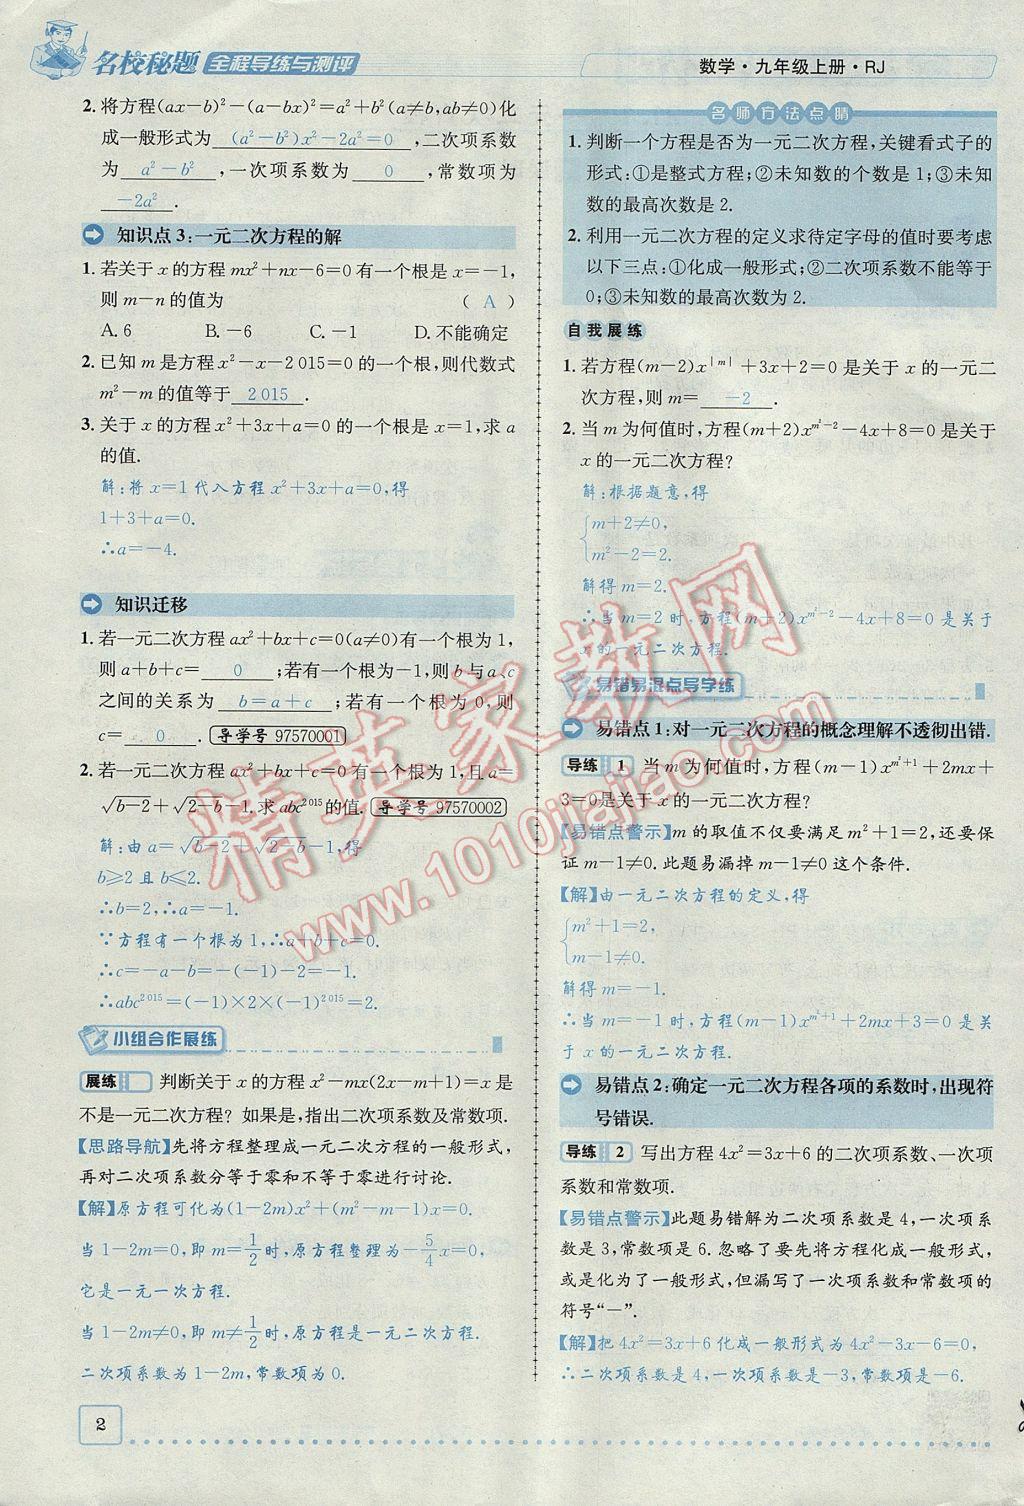 名校秘题 全程导练与测评
数学·九年级上册·RJ
2. 将方程(ax-b)²-(a-bx)²=a²+b²(a≠b,ab≠0)化
成一般形式为 (a²-b²)x²-2a²=0 ,二次项系数
为 a²-b² ,一次项系数为 0 ,常数项为
-2a² .
知识点3:一元二次方程的解
1. 若关于x的方程mx²+nx-6=0有一个根是x=-1,
则m-n的值为 ( A )
A. 6 B. -6 C. -1 D. 不能确定
2. 已知m是方程x²-x-2 015=0的一个根,则代数式
m²-m的值等于 2 015 .
3. 关于x的方程x²+3x+a=0的一个根是x=1,求a
的值.
解:将x=1代入方程x²+3x+a=0,得
1+3+a=0.
∴a=-4.
知识迁移
1. 若一元二次方程ax²+bx+c=0(a≠0)有一个根为1,
则a+b+c= 0 ;若有一个根为-1,则b与a、c
之间的关系为 b=a+c ;若有一个根为0,则
c= 0 . 导学号 97570001
2. 若一元二次方程ax²+bx+c=0有一个根为1,且a=
√b-2+√2-b-1,求abc²⁰¹⁵的值. 导学号 97570002
解:由a=√b-2+√2-b-1,得
b≥2且b≤2.
∴b=2,∴a=-1.
∵方程有一个根为1,∴a+b+c=0.
∴c=-a-b=-(-1)-2=-1.
∴abc²⁰¹⁵=(-1)×2×(-1)²⁰¹⁵=2.
小组合作展练
展练 判断关于x的方程x²-mx(2x-m+1)=x是
不是一元二次方程?如果是,指出二次项系数及常数项.
【思路导航】先将方程整理成一元二次方程的一般形式,
再对二次项系数分等于零和不等于零进行讨论.
【解】原方程可化为(1-2m)x²+(m²-m-1)x=0.
当1-2m=0,即m=1/2时,原方程整理为-5/4x=0,
它是一元一次方程.
当1-2m≠0,即m≠1/2时,原方程是一元二次方程.
二次项系数为1-2m,常数项为0.
2
名师方法点睛
1. 判断一个方程是否为一元二次方程,关键看式子的
形式:①是整式方程;②未知数的个数是1;③未知
数的最高次数是2.
2. 利用一元二次方程的定义求待定字母的值时要考虑
以下三点:①化成一般形式;②二次项系数不能等于
0;③未知数的最高次数为2.
自我展练
1. 若方程(m-2)x^|m|+3x+2=0是关于x的一元二
次方程,则m= -2 .
2. 当m为何值时,方程(m+2)x^(m²-2)-4x+8=0是关于
x的一元二次方程?
解:根据题意,得
{m+2≠0,
m²-2=2.
解得m=2.
∴当m=2时,方程(m+2)x^(m²-2)-4x+8=0是关于
x的一元二次方程.
易错易混点导学练
易错点1:对一元二次方程的概念理解不透彻出错.
导练 1 当m为何值时,方程(m-1)x^(m²+1)+2mx+
3=0是关于x的一元二次方程?
【易错点警示】m的取值不仅要满足m²+1=2,还要保
证m-1≠0.此题易漏掉m-1≠0这个条件.
【解】由一元二次方程的定义,得
{m²+1=2,
m-1≠0.
解得m=-1.
∴当m=-1时,方程(m-1)x^(m²+1)+2mx+3=0是关
于x的一元二次方程.
易错点2:确定一元二次方程各项的系数时,出现符
号错误.
导练 2 写出方程4x²=3x+6的二次项系数、一次项
系数和常数项.
【易错点警示】此题易错解为二次项系数是4,一次项系
数是3,常数项是6.忽略了要先将方程化成一般形式,
或是化为了一般形式,但漏写了一次项系数和常数项的
符号“-”.
【解】把4x²=3x+6化成一般形式为4x²-3x-6=0,
∴二次项系数是4,一次项系数是-3,常数项是-6.
精英家教网
www.1010jiajiao.com